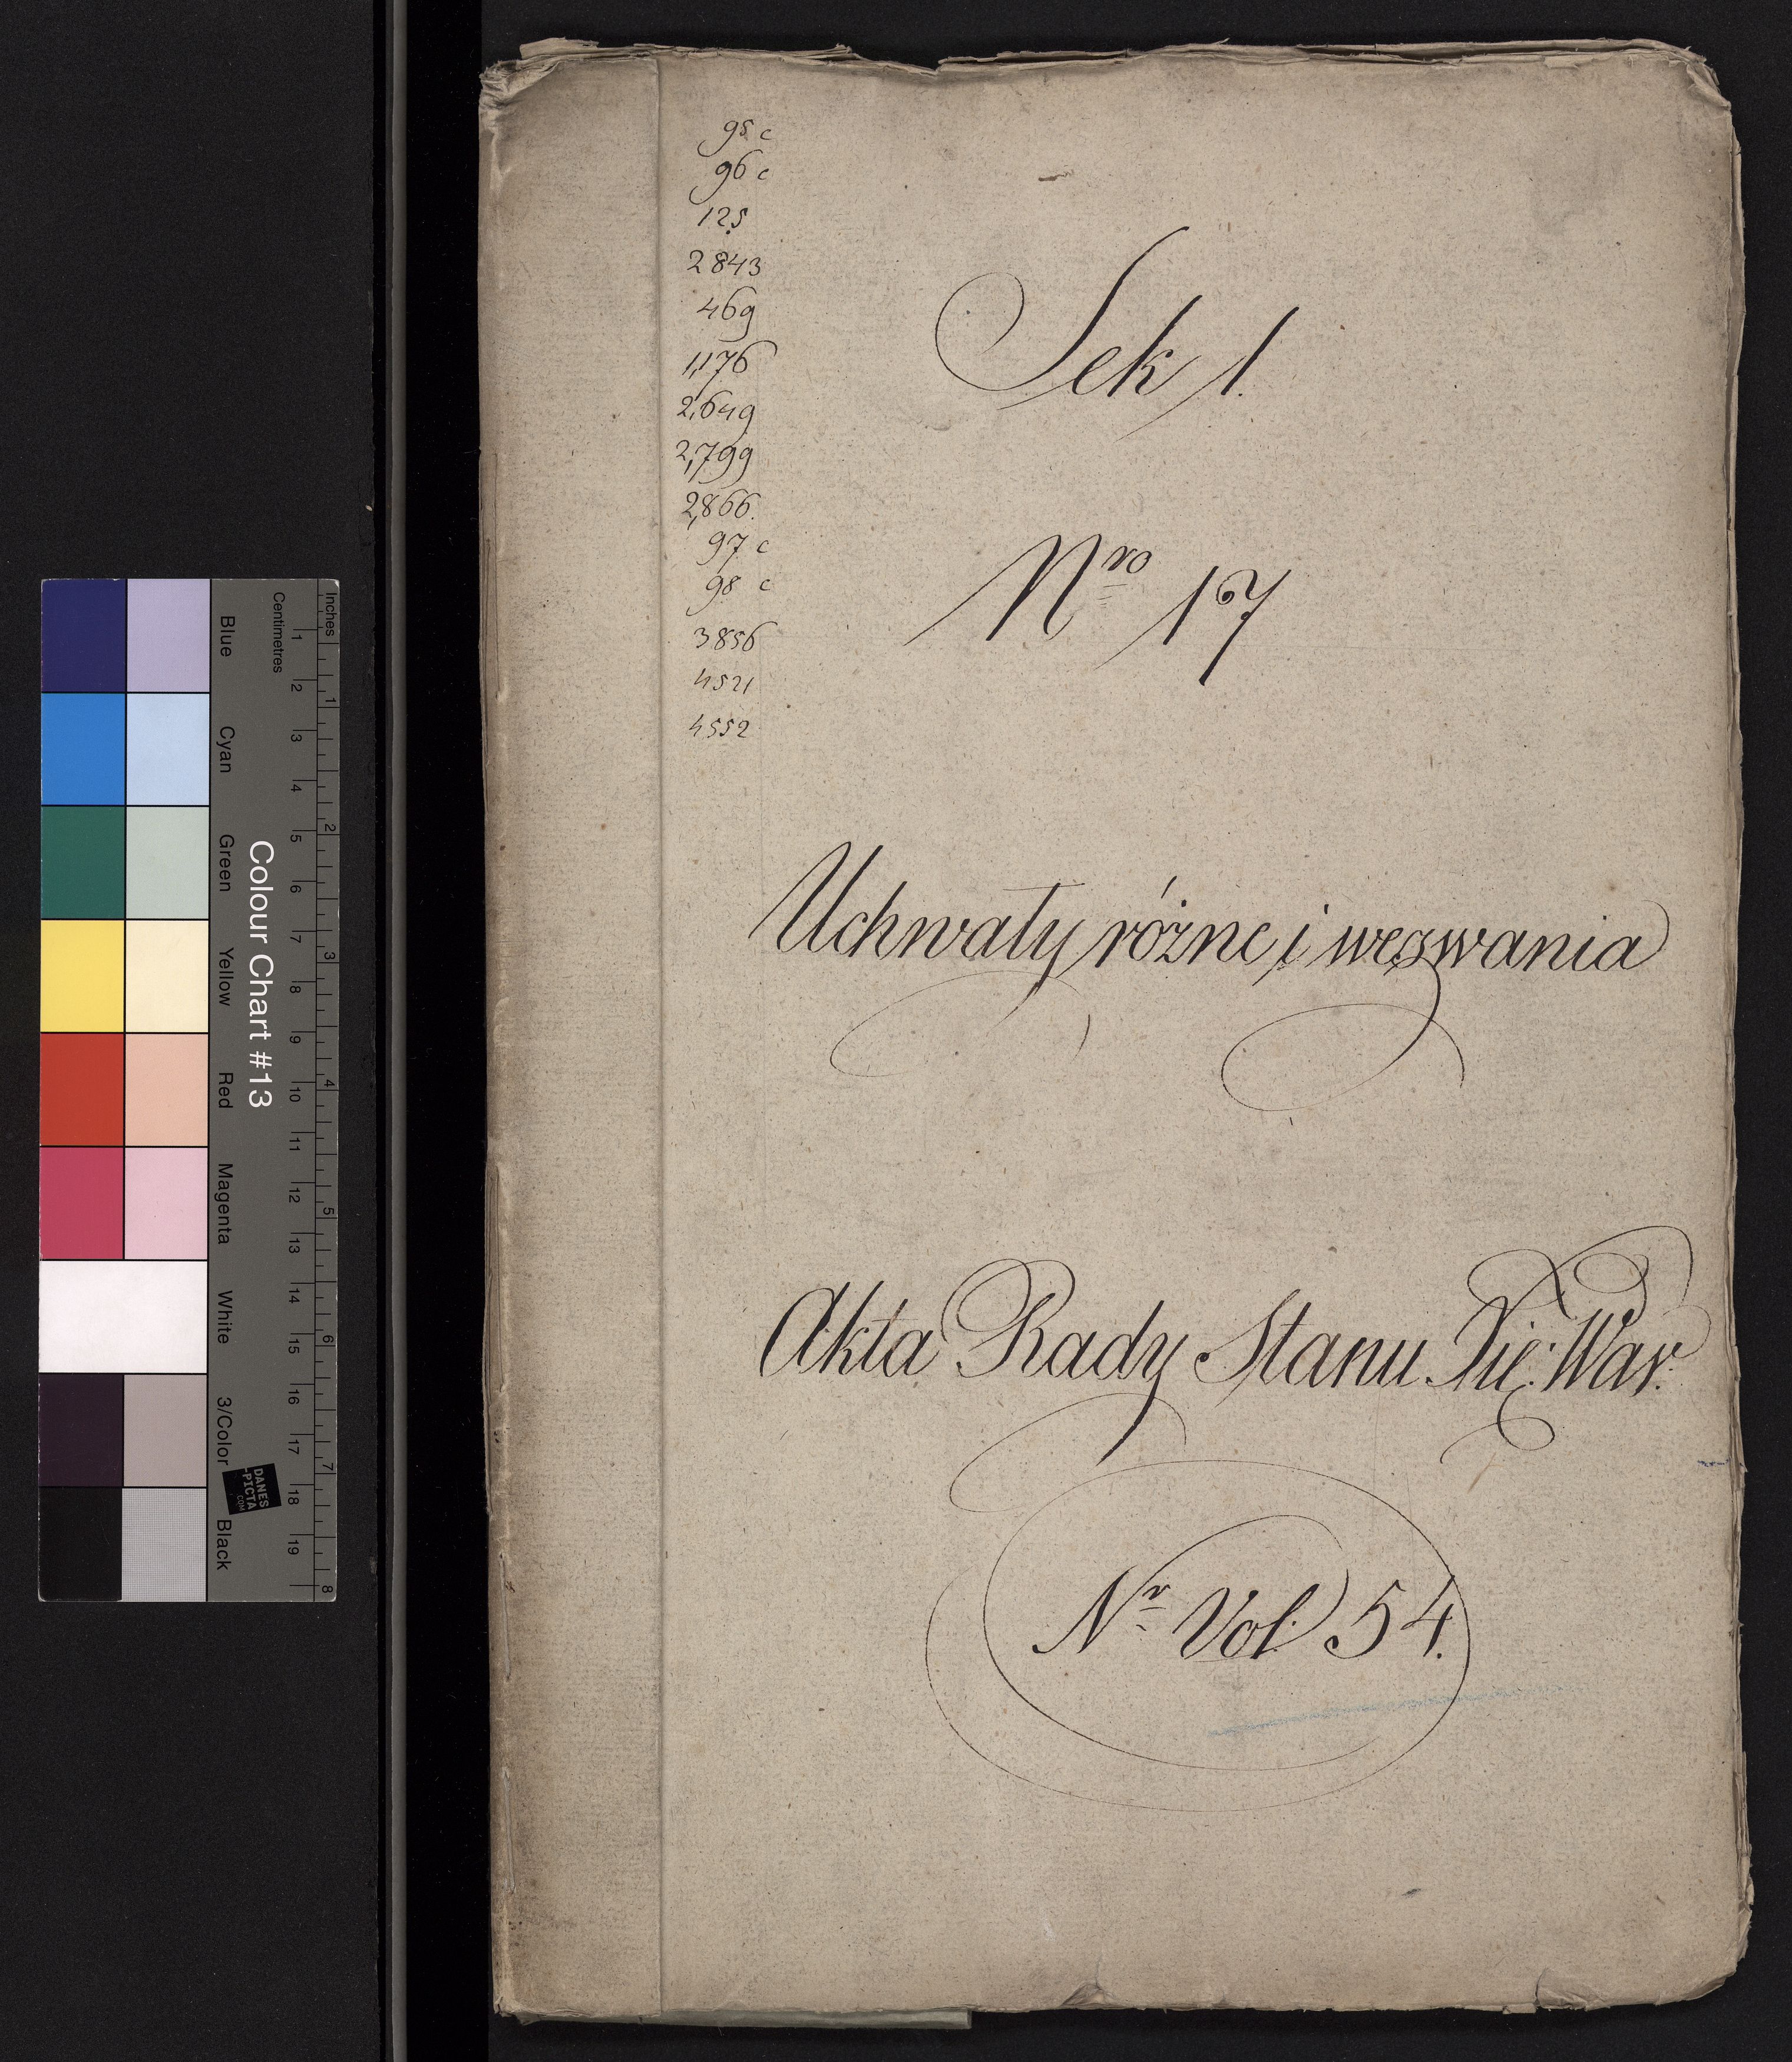 95 c
96 c
125
2843
469
1,176
2,649
2,799
2,866.
97 c
98 c
3856
4521
4552
Sek 1.
Nro 17
Uchwały różne i wezwania
Akta Rady Stanu Xię: War:
Nr Vol: 54.
Inches
Centimetres
1 2 3 4 5 6 7 8
1 2 3 4 5 6 7 8 9 10 11 12 13 14 15 16 17 18 19
Colour Chart #13
Blue
Cyan
Green
Yellow
Red
Magenta
White
3/Color
Black
DANES
-PICTA
.COM